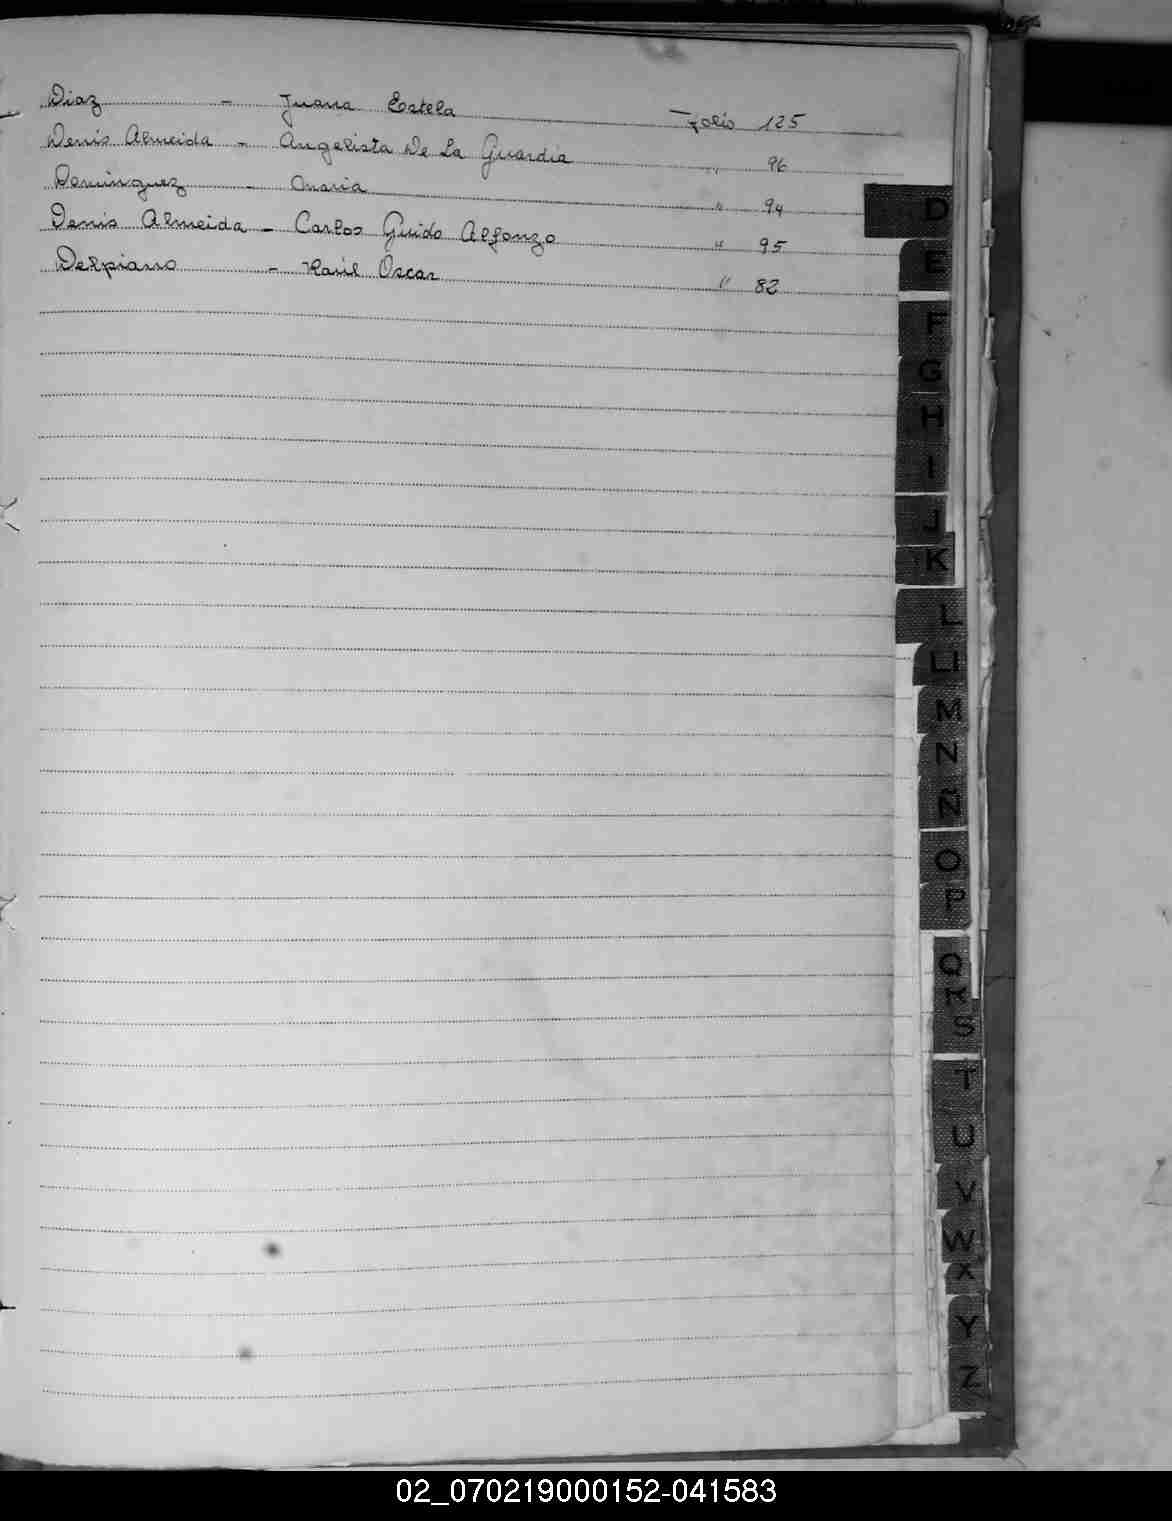 Diaz - Juana Estela - Folio 125
Denis Almeida - Angelista De La Guardia " 96
Dominguez - Maria " 94
Denis Almeida - Carlos Guido Alfonzo " 95
Delpiano - Raúl Oscar " 82
D
E
F
G
H
I
J
K
L
LL
M
N
Ñ
O
P
Q
R
S
T
U
V
W
X
Y
Z
02_070219000152-041583